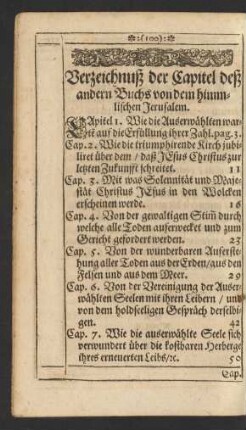 :(100):
Verzeichnuß der Capitel deß
andern Buchs von dem himm-
lischen Jerusalem.
CApitel 1. Wie die Auserwählten war-
tē auf die Erfüllung ihrer Zahl. pag. 3.
Cap. 2. Wie die triumphirende Kirch jubi-
liret über dem / daß JEsus Christus zur
letzten Zukunfft schreitet. 11
Cap. 3. Mit was Solennität und Maje-
stät Christus JEsus in den Wolcken
erscheinen werde. 16
Cap. 4. Von der gewaltigen Stim̄ durch
welche alle Toden auferwecket und zum
Gericht gefordert werden. 23
Cap. 5. Von der wunderbaren Auferste-
hung aller Toden aus der Erden / aus den
Felsen und aus dem Meer. 29
Cap. 6. Von der Vereinigung der Auser-
wählten Seelen mit ihren Leibern / und
von dem holdseeligen Gespräch derselbi-
gen. 42
Cap. 7. Wie die auserwählte Seele sich
verwundert über die kostbaren Herberge
ihres erneuerten Leibs / ꝛc. 50
Cap.